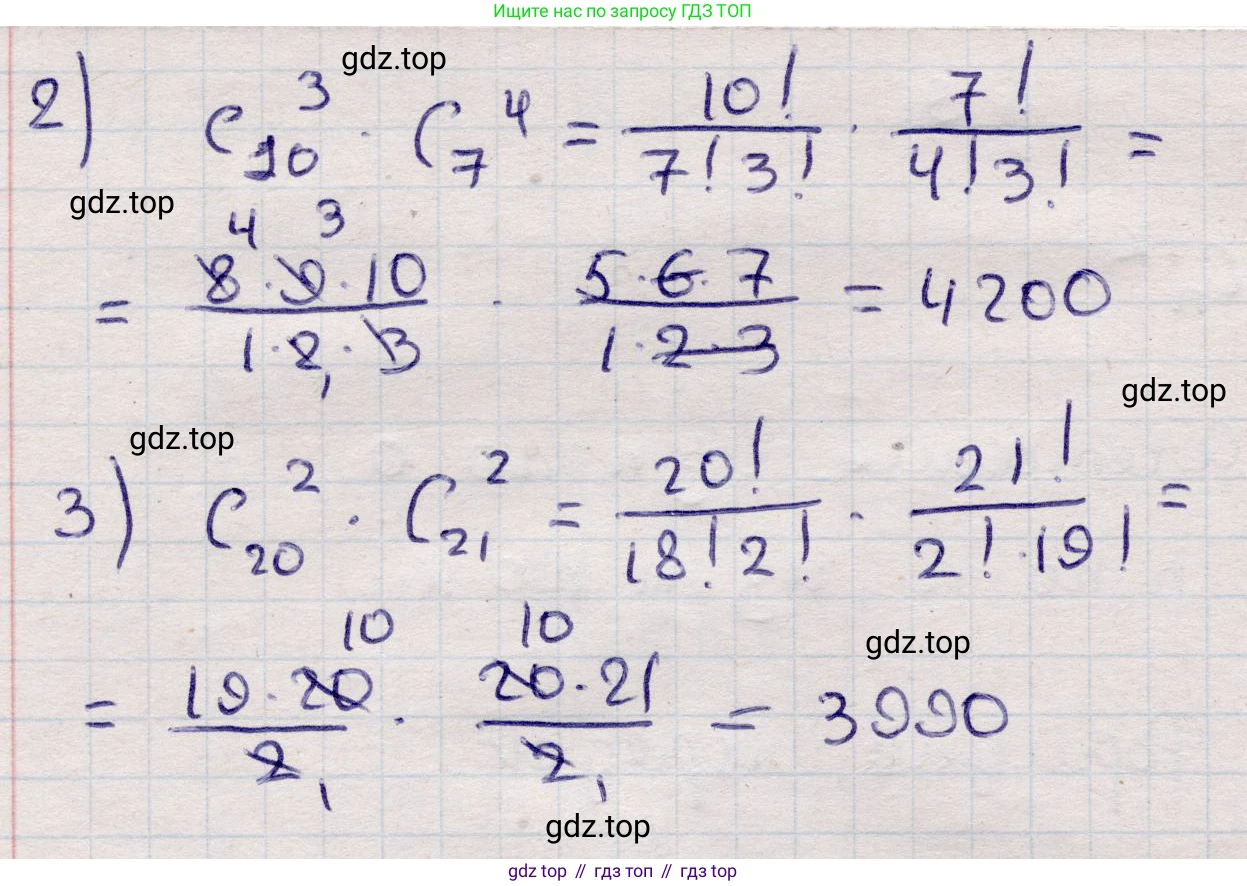 Ищите нас по запросу ГДЗ ТОП
gdz.top
2) C₁₀³ · C₇⁴ = 10!/(7! 3!) · 7!/(4! 3!) =
gdz.top
4 3
= (8 · 9 · 10)/(1 · 2 · 3) · (5 · 6 · 7)/(1 · 2 · 3) = 4200
1
gdz.top
gdz.top
3) C₂₀² · C₂₁² = 20!/(18! 2!) · 21!/(2! · 19!) =
10 10
gdz.top
= (19 · 20)/2 · (20 · 21)/2 = 3990
1 1
gdz.top
gdz top // гдз топ // gdz top